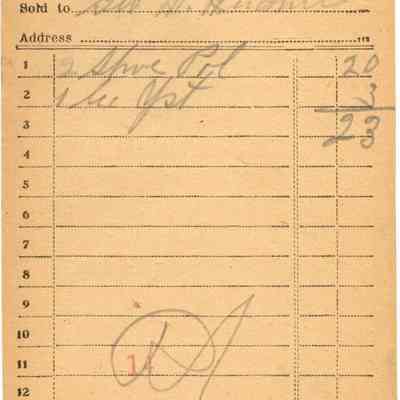 Sold to
Address
1 2 Stove Pol 20
2 1 Yst 3
3 23
4
5
6
7
8
9
10
11
12